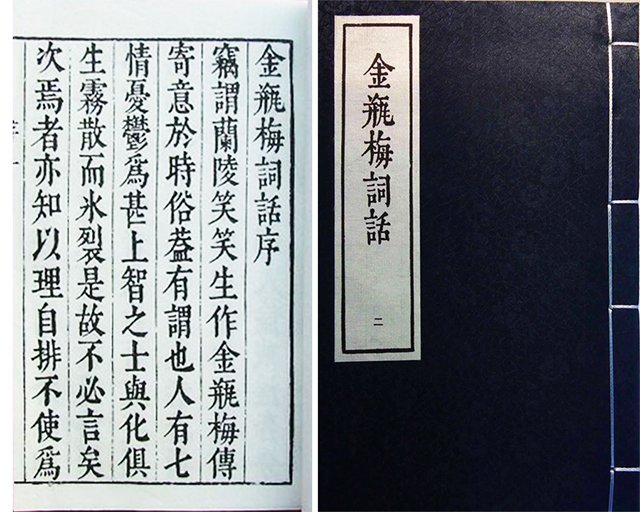 金瓶梅詞話序
竊謂蘭陵笑笑生作金瓶梅傳
寄意於時俗葢有謂也人有七
情憂鬱爲甚上智之士與化俱
生霧散而氷裂是故不必言矣
次焉者亦知以理自排不使爲
金瓶梅詞話
二